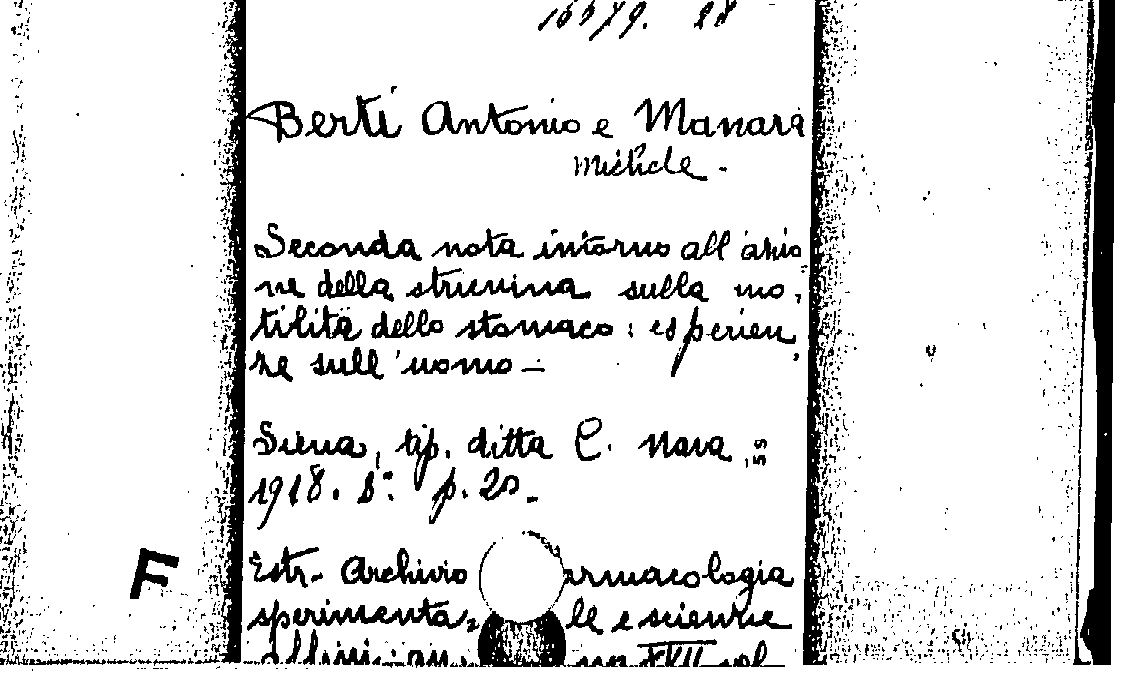 16679. 28
Berti Antonio e Manara
Michele.
Seconda nota intorno all'azio
ne della stricnina sulla mo,
tilità dello stomaco: esperien,
ze sull'uomo –
Siena, tip. ditta C. Nava,
1918. 8°. p. 20.
Estr. Archivio armacologia
sperimenta, le e scienze
affini, an. XVII vol.
F